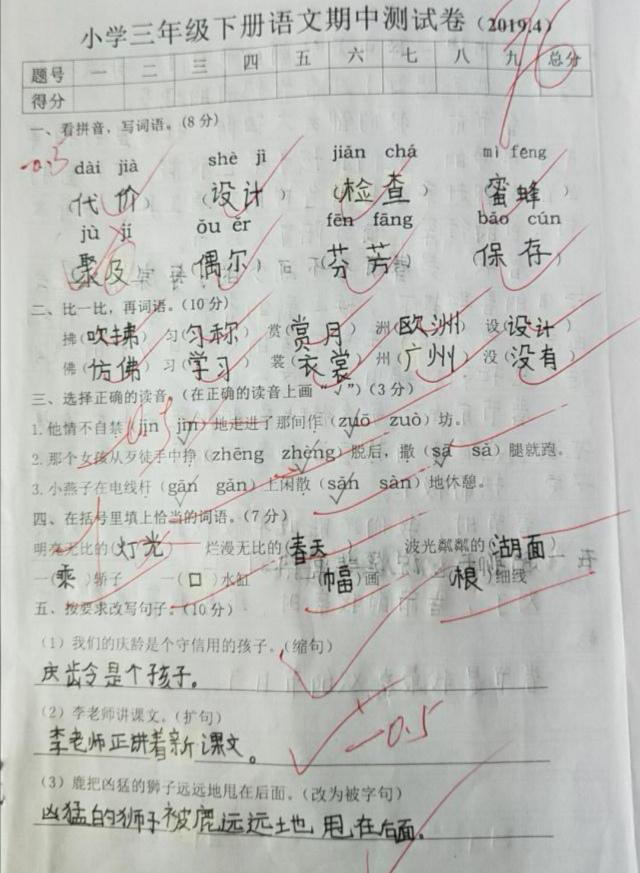 小学三年级下册语文期中测试卷（2019.4）
题号 一 二 三 四 五 六 七 八 九 总分
得分
一、看拼音，写词语。（8 分）
-0.5
dài jià shè jì jiǎn chá mì fēng
（代价）（设计）（检查）（蜜蜂）
jù jí ǒu ěr fēn fāng bǎo cún
（聚及）（偶尔）（芬芳）（保存）
二、比一比，再词语。（10 分）
拂（吹拂） 匀（匀称） 赏（赏月） 洲（欧洲） 设（设计）
佛（仿佛） 习（学习） 裳（衣裳） 州（广州） 没（没有）
三、选择正确的读音。（在正确的读音上画“√”）（3 分）
1.他情不自禁（jīn jìn）地走进了那间作（zuō zuò）坊。
2.那个女孩从歹徒手中挣（zhēng zhèng）脱后，撒（sā sà）腿就跑。
3.小燕子在电线杆（gān gǎn）上闲散（sǎn sàn）地休憩。
四、在括号里填上恰当的词语。（7 分）
明亮无比的（灯光） 烂漫无比的（春天） 波光粼粼的（湖面）
一（乘）轿子 一（口）水缸 一（幅）画 一（根）细线
五、按要求改写句子。（10 分）
（1）我们的庆龄是个守信用的孩子。（缩句）
庆龄是个孩子。
（2）李老师讲课文。（扩句）
-0.5
李老师正讲着新课文。
（3）鹿把凶猛的狮子远远地甩在后面。（改为被字句）
凶猛的狮子被鹿远远地甩在后面。